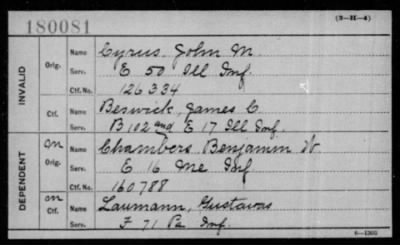 180081
(3-H-4)
INVALID
Orig.
Name Cyrus, John M.
Serv. E 50 Ill Inf.
Ctf. No. 126334
Ctf.
Name Beswick, James C.
Serv. B 102 and E 17 Ill Inf.
DEPENDENT
on
Orig.
Name Chambers, Benjamin W
Serv. E 16 Me Inf
Ctf. No. 160788
on
Ctf.
Name Laumann, Gustavas
Serv. F 71 Pa Inf.
6-1303